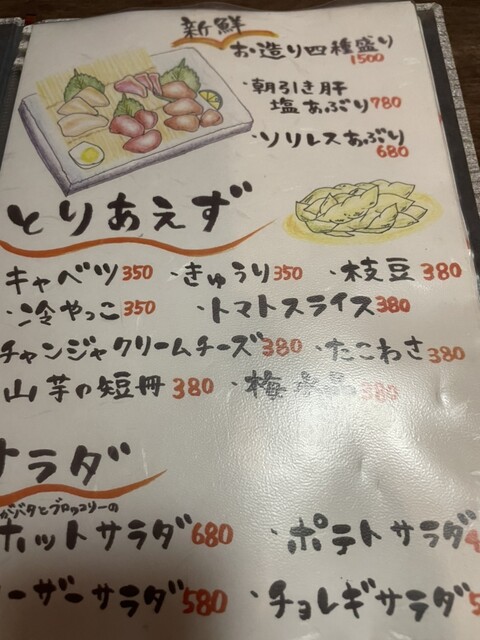 新鮮
お造り四種盛り
1500
・朝引き肝
塩あぶり780
・ソリレスあぶり
680
とりあえず
キャベツ350 ・きゅうり350 ・枝豆380
・冷やっこ350 ・トマトスライス380
チャンジャクリームチーズ380 ・たこわさ380
山芋の短冊380 ・梅水晶380
サラダ
がバタとブロッコリーの
ホットサラダ680 ・ポテトサラダ
ーザーサラダ580 ・チョレギサラダ